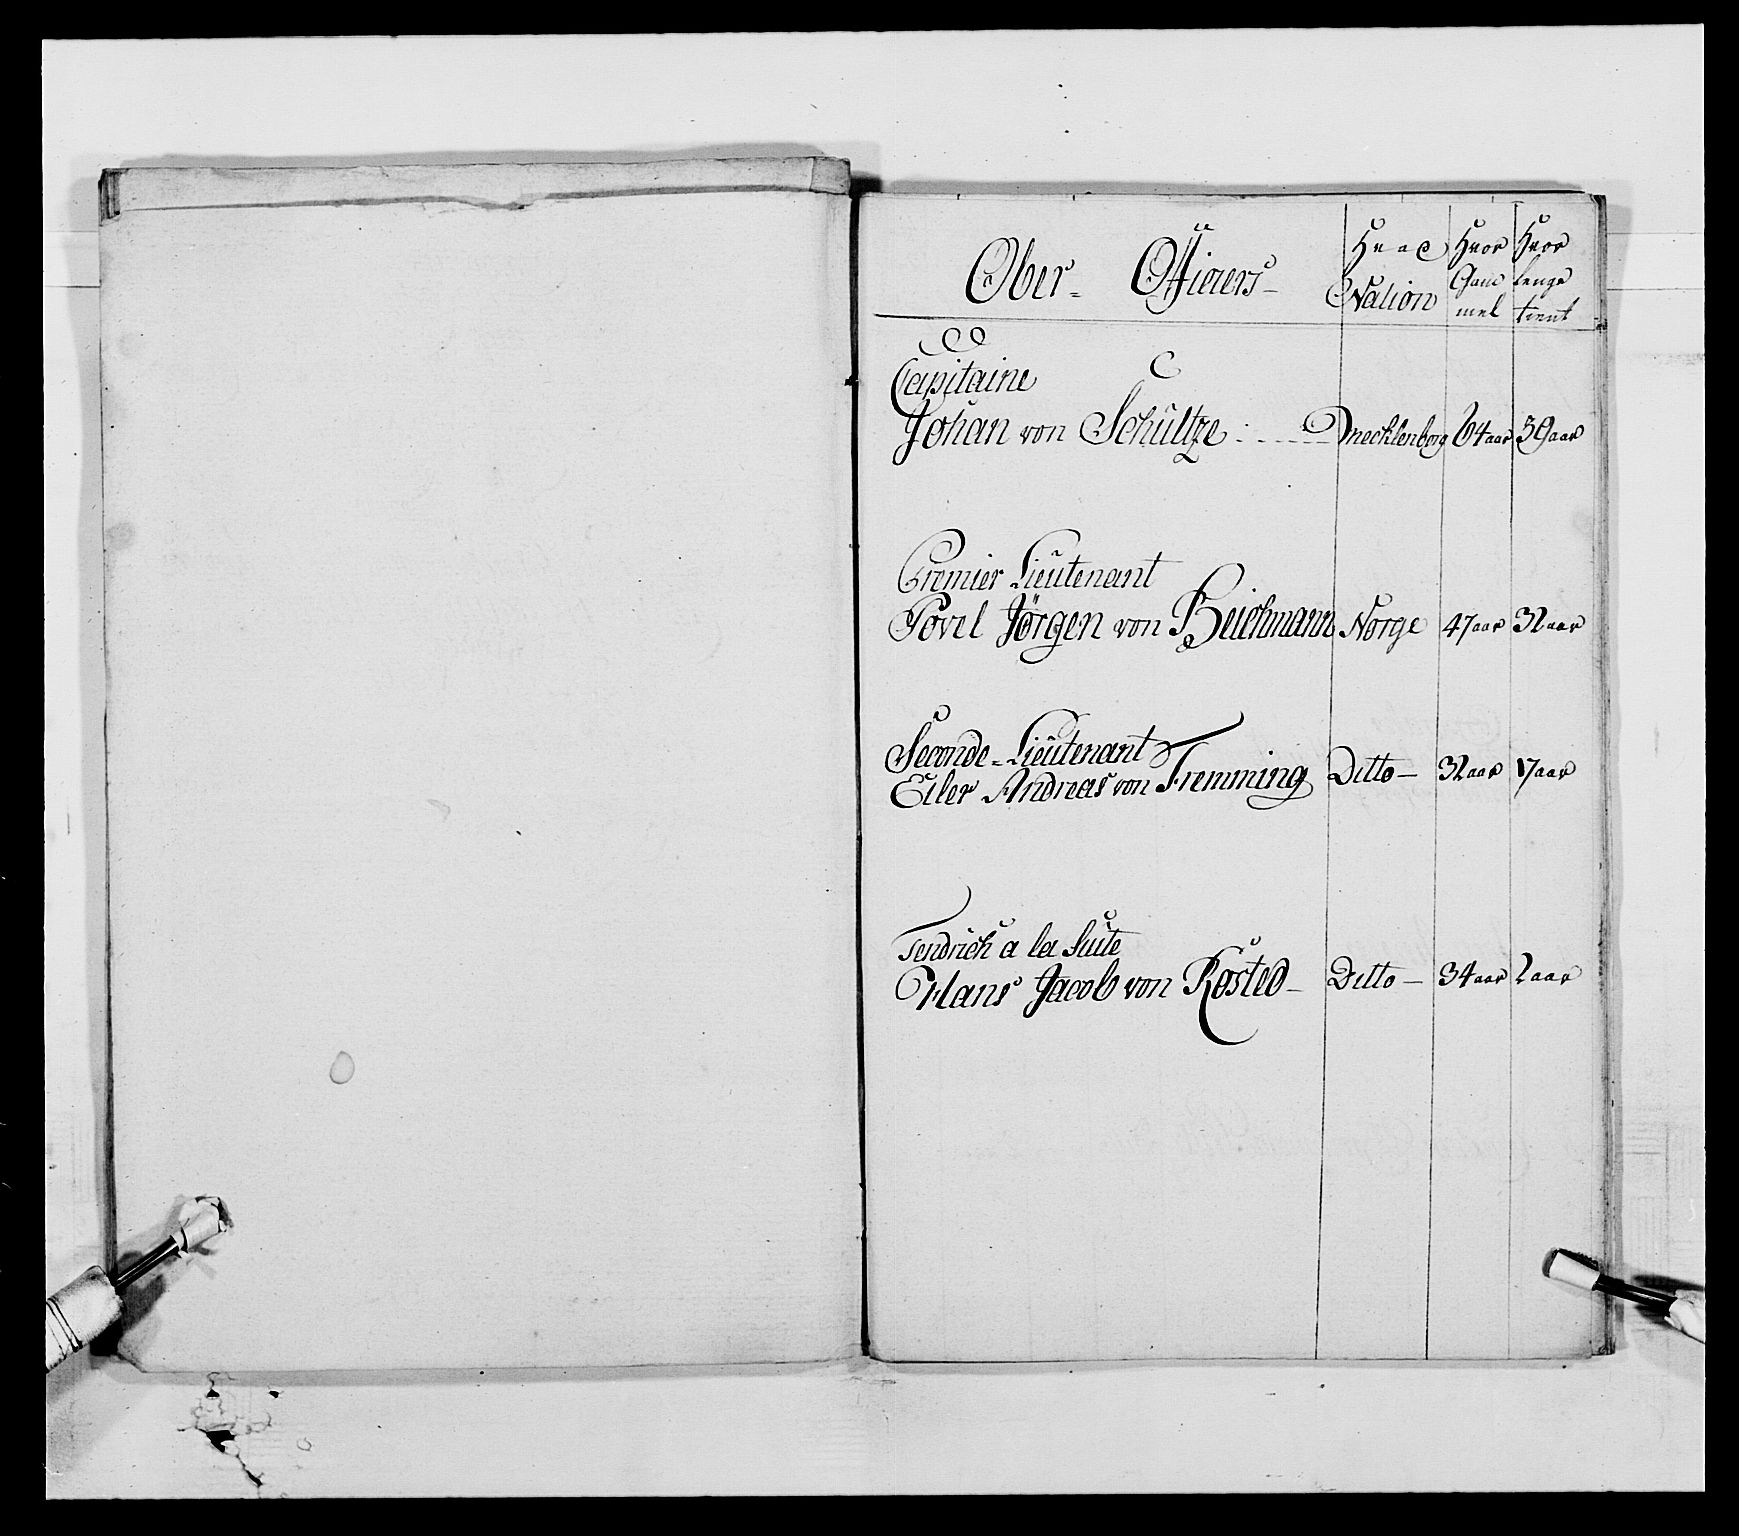 Ober- Officiers- Hvad Nation Hvor Gam mel Hvor lenge tient
Capitaine
Johan von Schültze Mecklenborg 64 aar 39 aar
Premier Lieutenant
Povel Jörgen von Beichmann Norge 47 aar 32 aar
Seconde-Lieutenant
Eiler Andreas von Fremming Ditto- 32 aar 17 aar
Fendrich a la Suite
Hans Jacob von Røsted- Ditto- 34 aar 2 aar